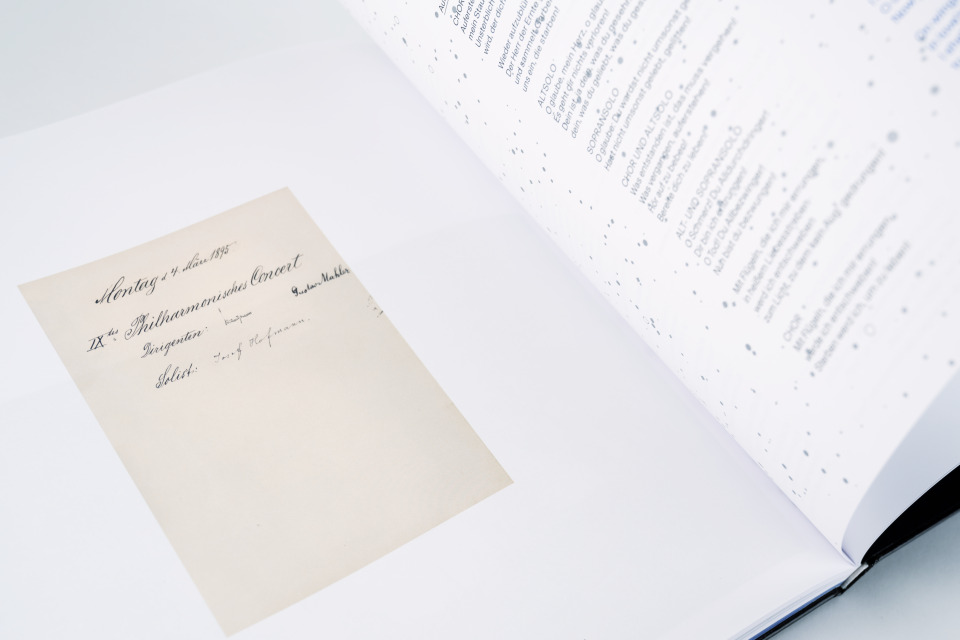 Montag d. 4. März 1895
IXtes Philharmonisches Concert
Dirigenten:
Gustav Mahler
Solist: Josef Hofmann.
CHOR
Auferste
mein Stau
Unsterblich
wird, der dich
Wieder aufzublü
Der Herr der Ernte
und sammelt Garbe
uns ein, die starben!
ALTSOLO
O glaube, mein Herz, o glau
Es geht dir nichts verloren!
Dein ist, ja dein, was du geseh
dein, was du geliebt, was du ges
SOPRANSOLO
O glaube: Du wardst nicht umsonst ge
Hast nicht umsonst gelebt, gelitten!
CHOR UND ALTSOLO
Was entstanden ist, das muss vergehen!
Was vergangen, auferstehen!
Hör auf zu beben!
Bereite dich zu leben!
ALT- UND SOPRANSOLO
O Schmerz! Du Alldurchdringer!
Dir bin ich entrungen!
O Tod! Du Allbezwinger!
Nun bist du bezwungen!
Mit Flügeln, die ich mir errungen,
in heißem Liebesstreben
werd ich entschweben
zum Licht, zu dem kein Aug' gedrungen!
CHOR
Mit Flügeln, die ich mir errungen,
werde ich entschweben!
Sterben werd ich, um zu leben!